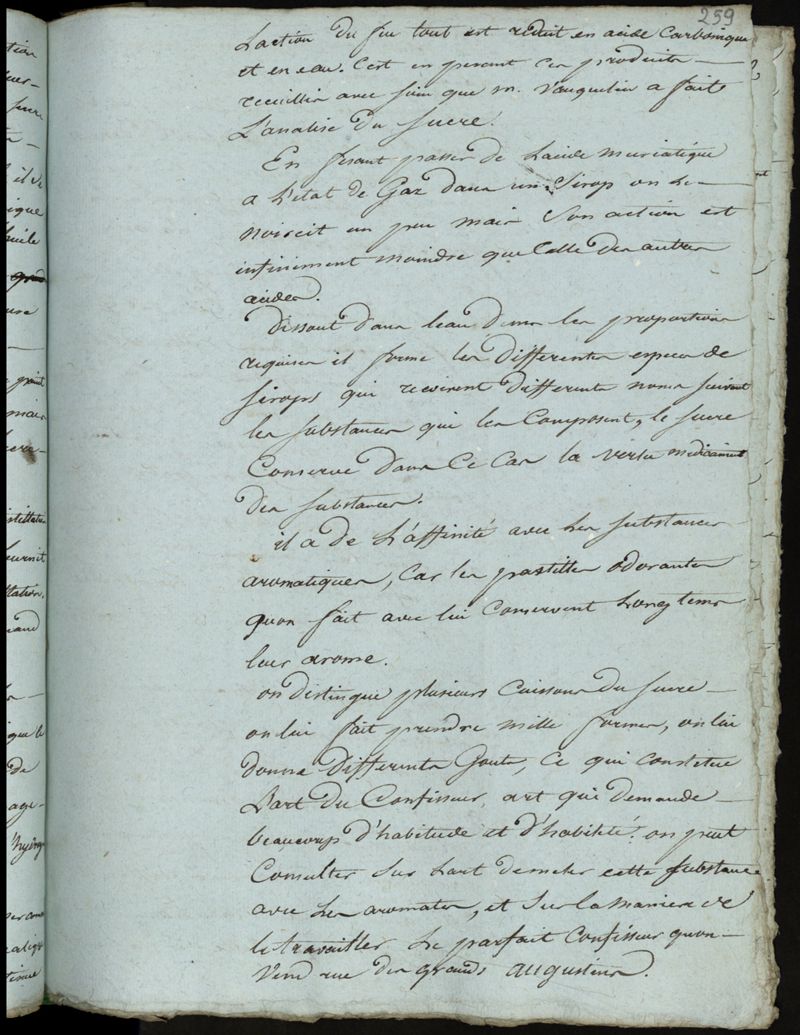 259
L'action du feu tout est réduit en acide Carbonique
et en eau. C'est en pesant ces produits
recueillis avec soin que m. Vauquelin a fait
L'analise du Sucre.
En fesant passer de L'acide muriatique
a L'état de Gaz dans un Sirop on Le
noircit un peu mais Son action est
infiniment moindre que Celle des autres
acides.
Dissout dans l'eau dans les proportions
requises il forme les differentes especes de
Sirops qui recoivent differents noms suivant
les substances qui les Composent, le sucre
Conserve dans Ce Cas la vertu medicament
des substances.
il a de L'affinité avec Les substances
aromatiques, Car les pastilles odorantes
qu'on fait avec lui Conservent Longtems
leur arome.
on distingue plusieurs Cuissons du Sucre
on lui fait prendre mille formes, on lui
donne differents Gouts, Ce qui constitue
L'art du Confisseur, art qui demande
beaucoup d'habitude et d'habileté. on peut
Consulter sur L'art de meler cette substance
avec Les aromates, et Sur la maniere de
le travailler Le parfait Confisseur qu'on
Vend rue des grands augustins.